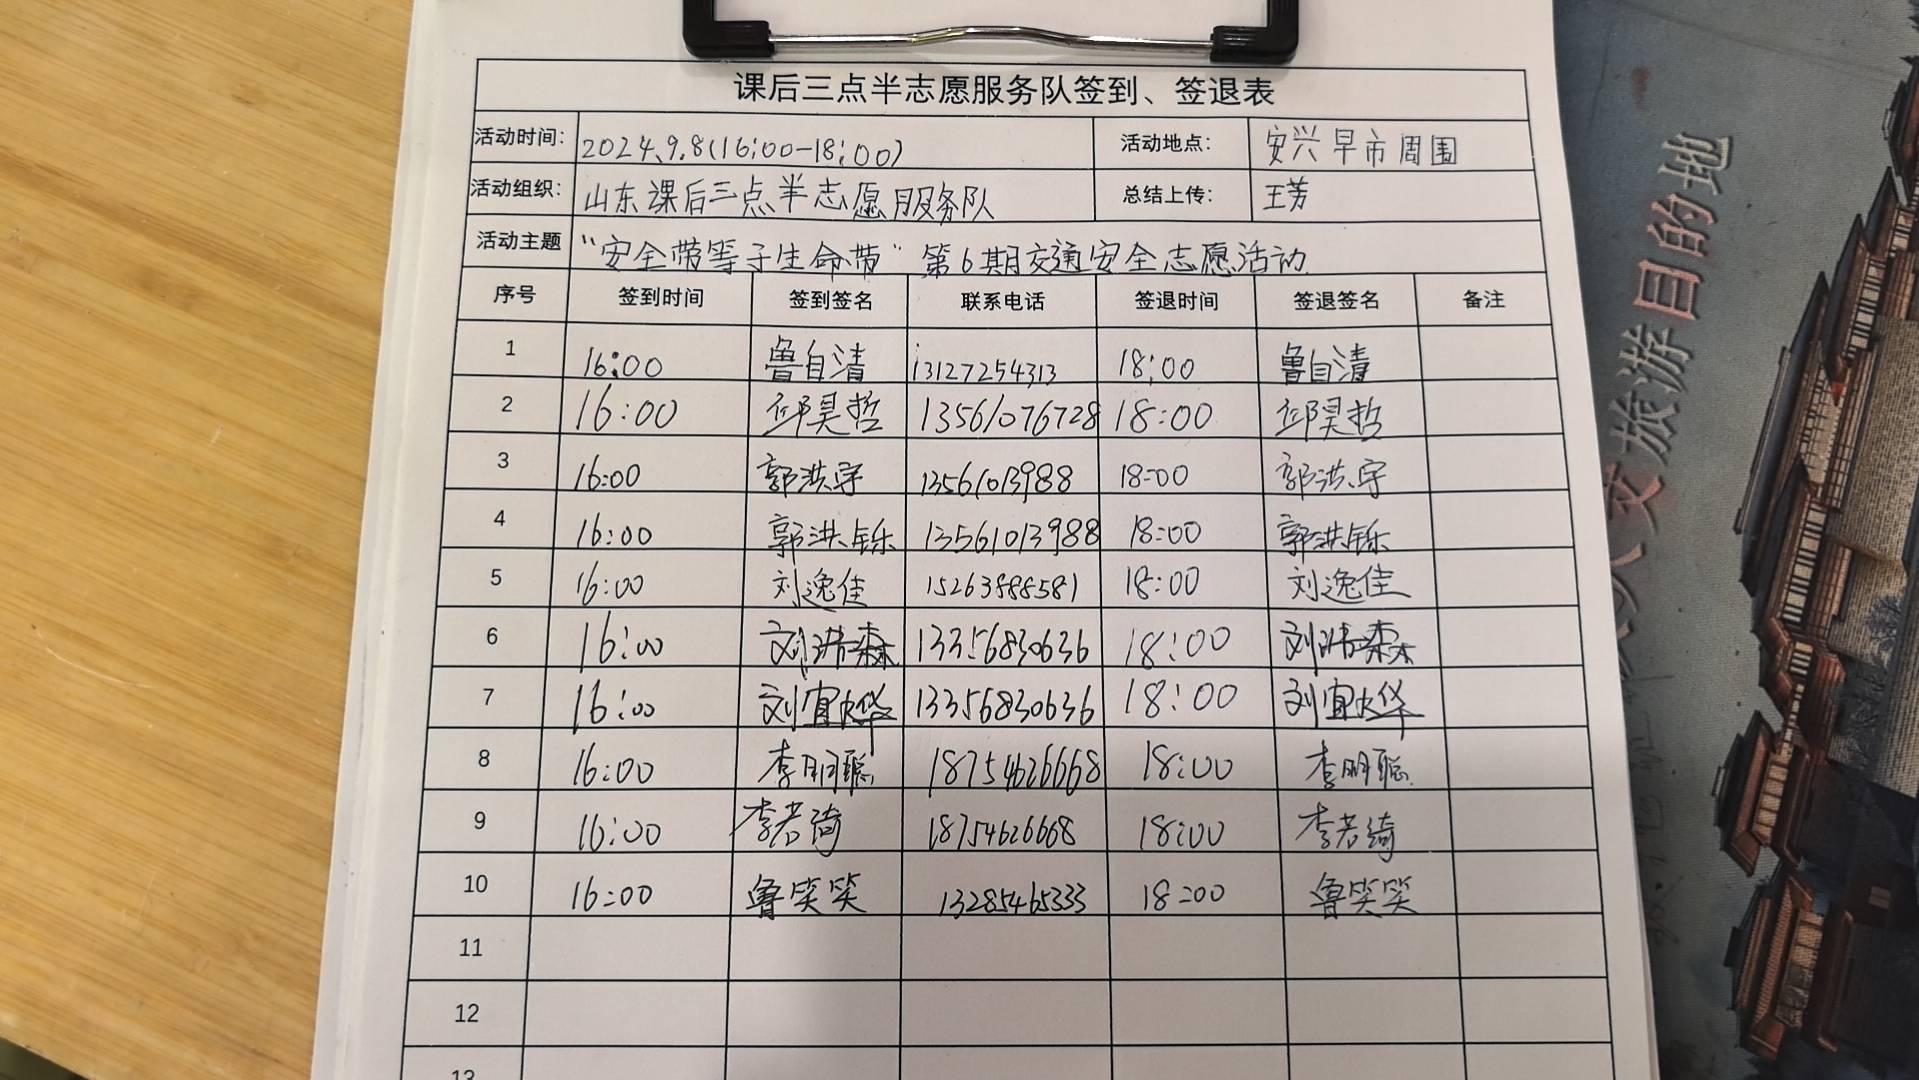 课后三点半志愿服务队签到、签退表
活动时间： 2024.9.8(16:00-18:00) 活动地点： 安兴早市周围
活动组织： 山东课后三点半志愿服务队 总结上传： 王芳
活动主题 “安全带等于生命带”第6期交通安全志愿活动
序号 签到时间 签到签名 联系电话 签退时间 签退签名 备注
1 16:00 鲁自清 13127254313 18:00 鲁自清
2 16:00 邱昊哲 13561076728 18:00 邱昊哲
3 16:00 郭洪宇 13561013988 18:00 郭洪宇
4 16:00 郭洪铄 13561013988 18:00 郭洪铄
5 16:00 刘逸佳 15263888581 18:00 刘逸佳
6 16:00 13356830636 18:00
7 16:00 刘宜烨 13356830636 18:00 刘宜烨
8 16:00 李明聪 18754626668 18:00 李明聪
9 16:00 李若绮 18754626668 18:00 李若绮
10 16:00 鲁笑笑 13285465333 18:00 鲁笑笑
11
12
13
旅游目的地